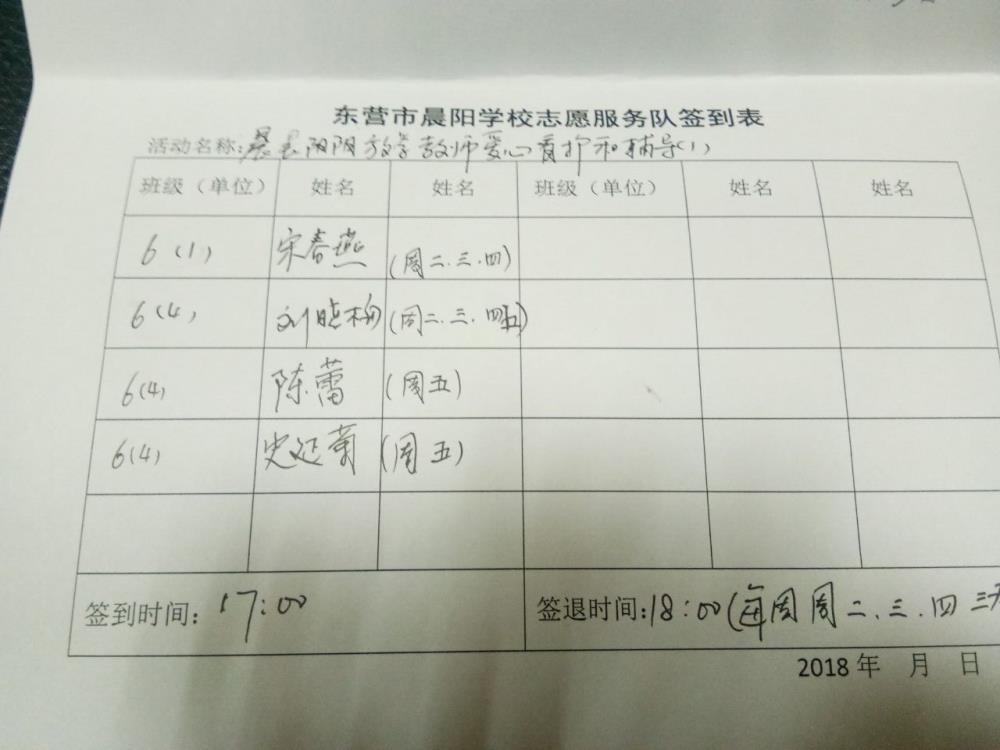 东营市晨阳学校志愿服务队签到表
活动名称:晨阳放学教师爱心看护和辅导(1)
班级（单位） 姓名 姓名 班级（单位） 姓名 姓名
6（1） 宋春燕 (周二.三.四)
6(4) 刘晓梅 (周二.三.四五)
6(4) 陈蕾 (周五)
6(4) 史延菊 (周五)
签到时间：17:00 签退时间:18:00(每周周二.三.四三天
2018年 月 日